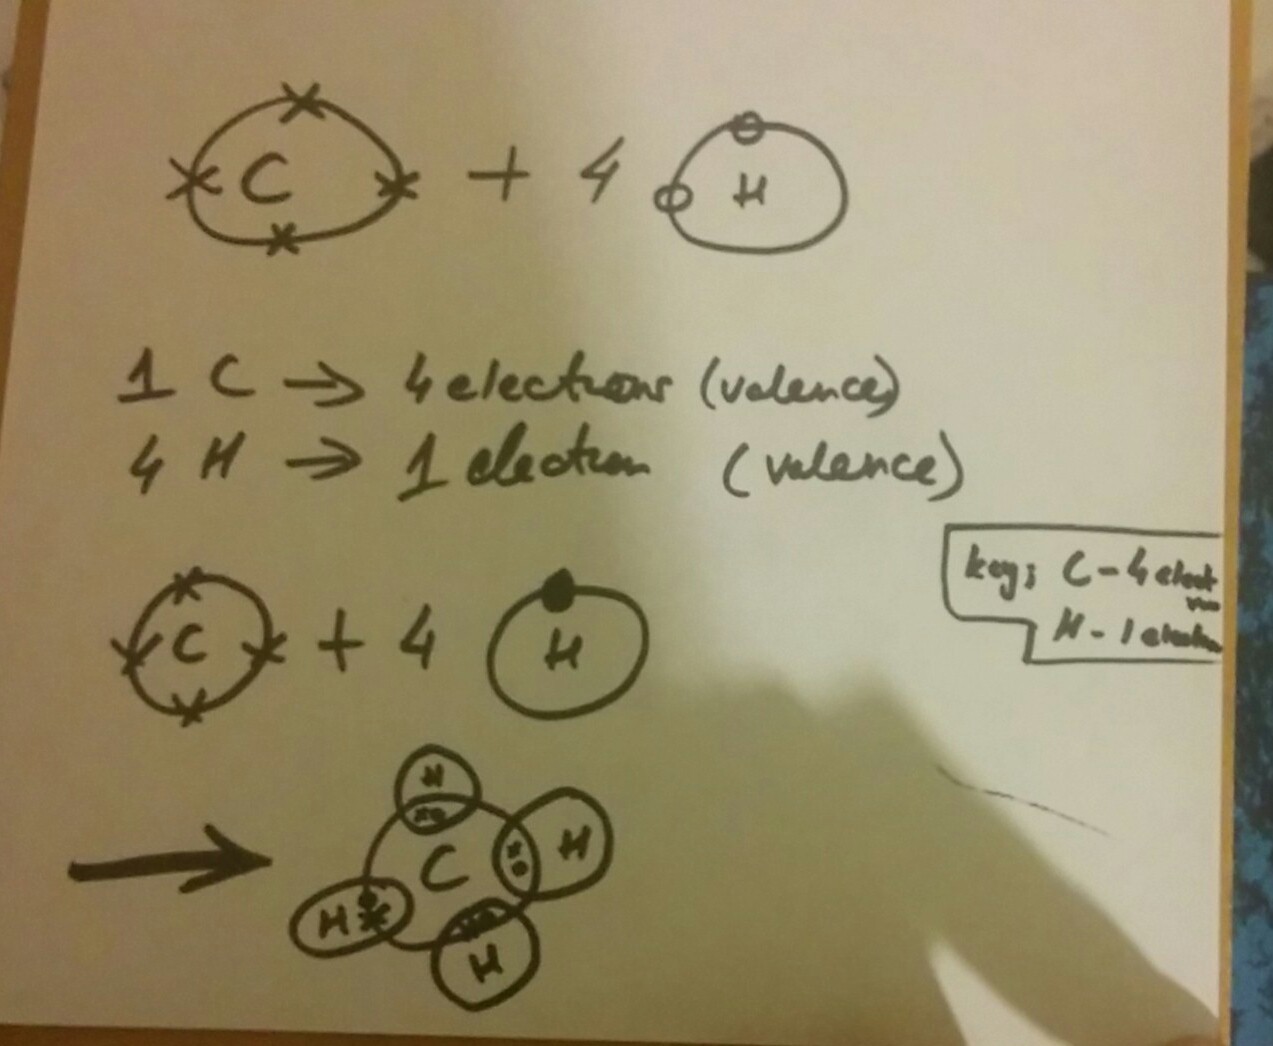 C + 4 H
1 C → 4 electrons (valence)
4 H → 1 electron (valence)
key; C - 4 elect
H - 1 electron
C + 4 H
→
H
C H
H
H